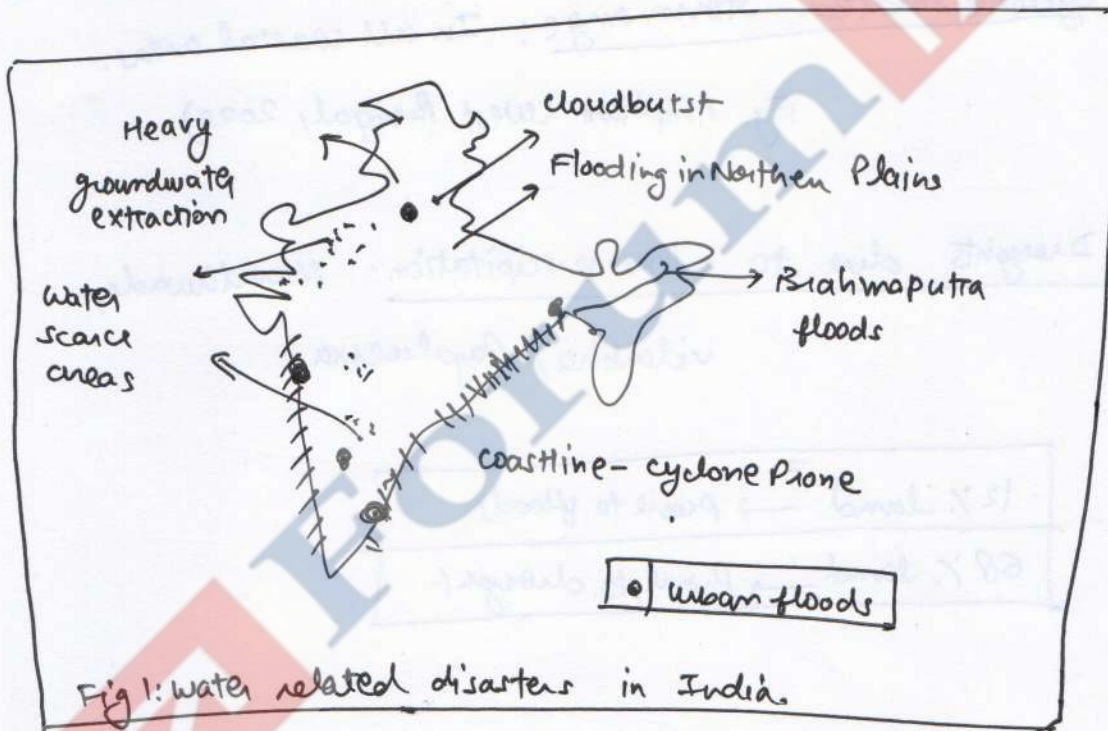 Heavy
groundwater
extraction
cloudburst
Flooding in Northen Plains
water
scarce
areas
Brahmaputra
floods
coastline - cyclone Prone
urban floods
Fig 1: water related disasters in India.
Forum